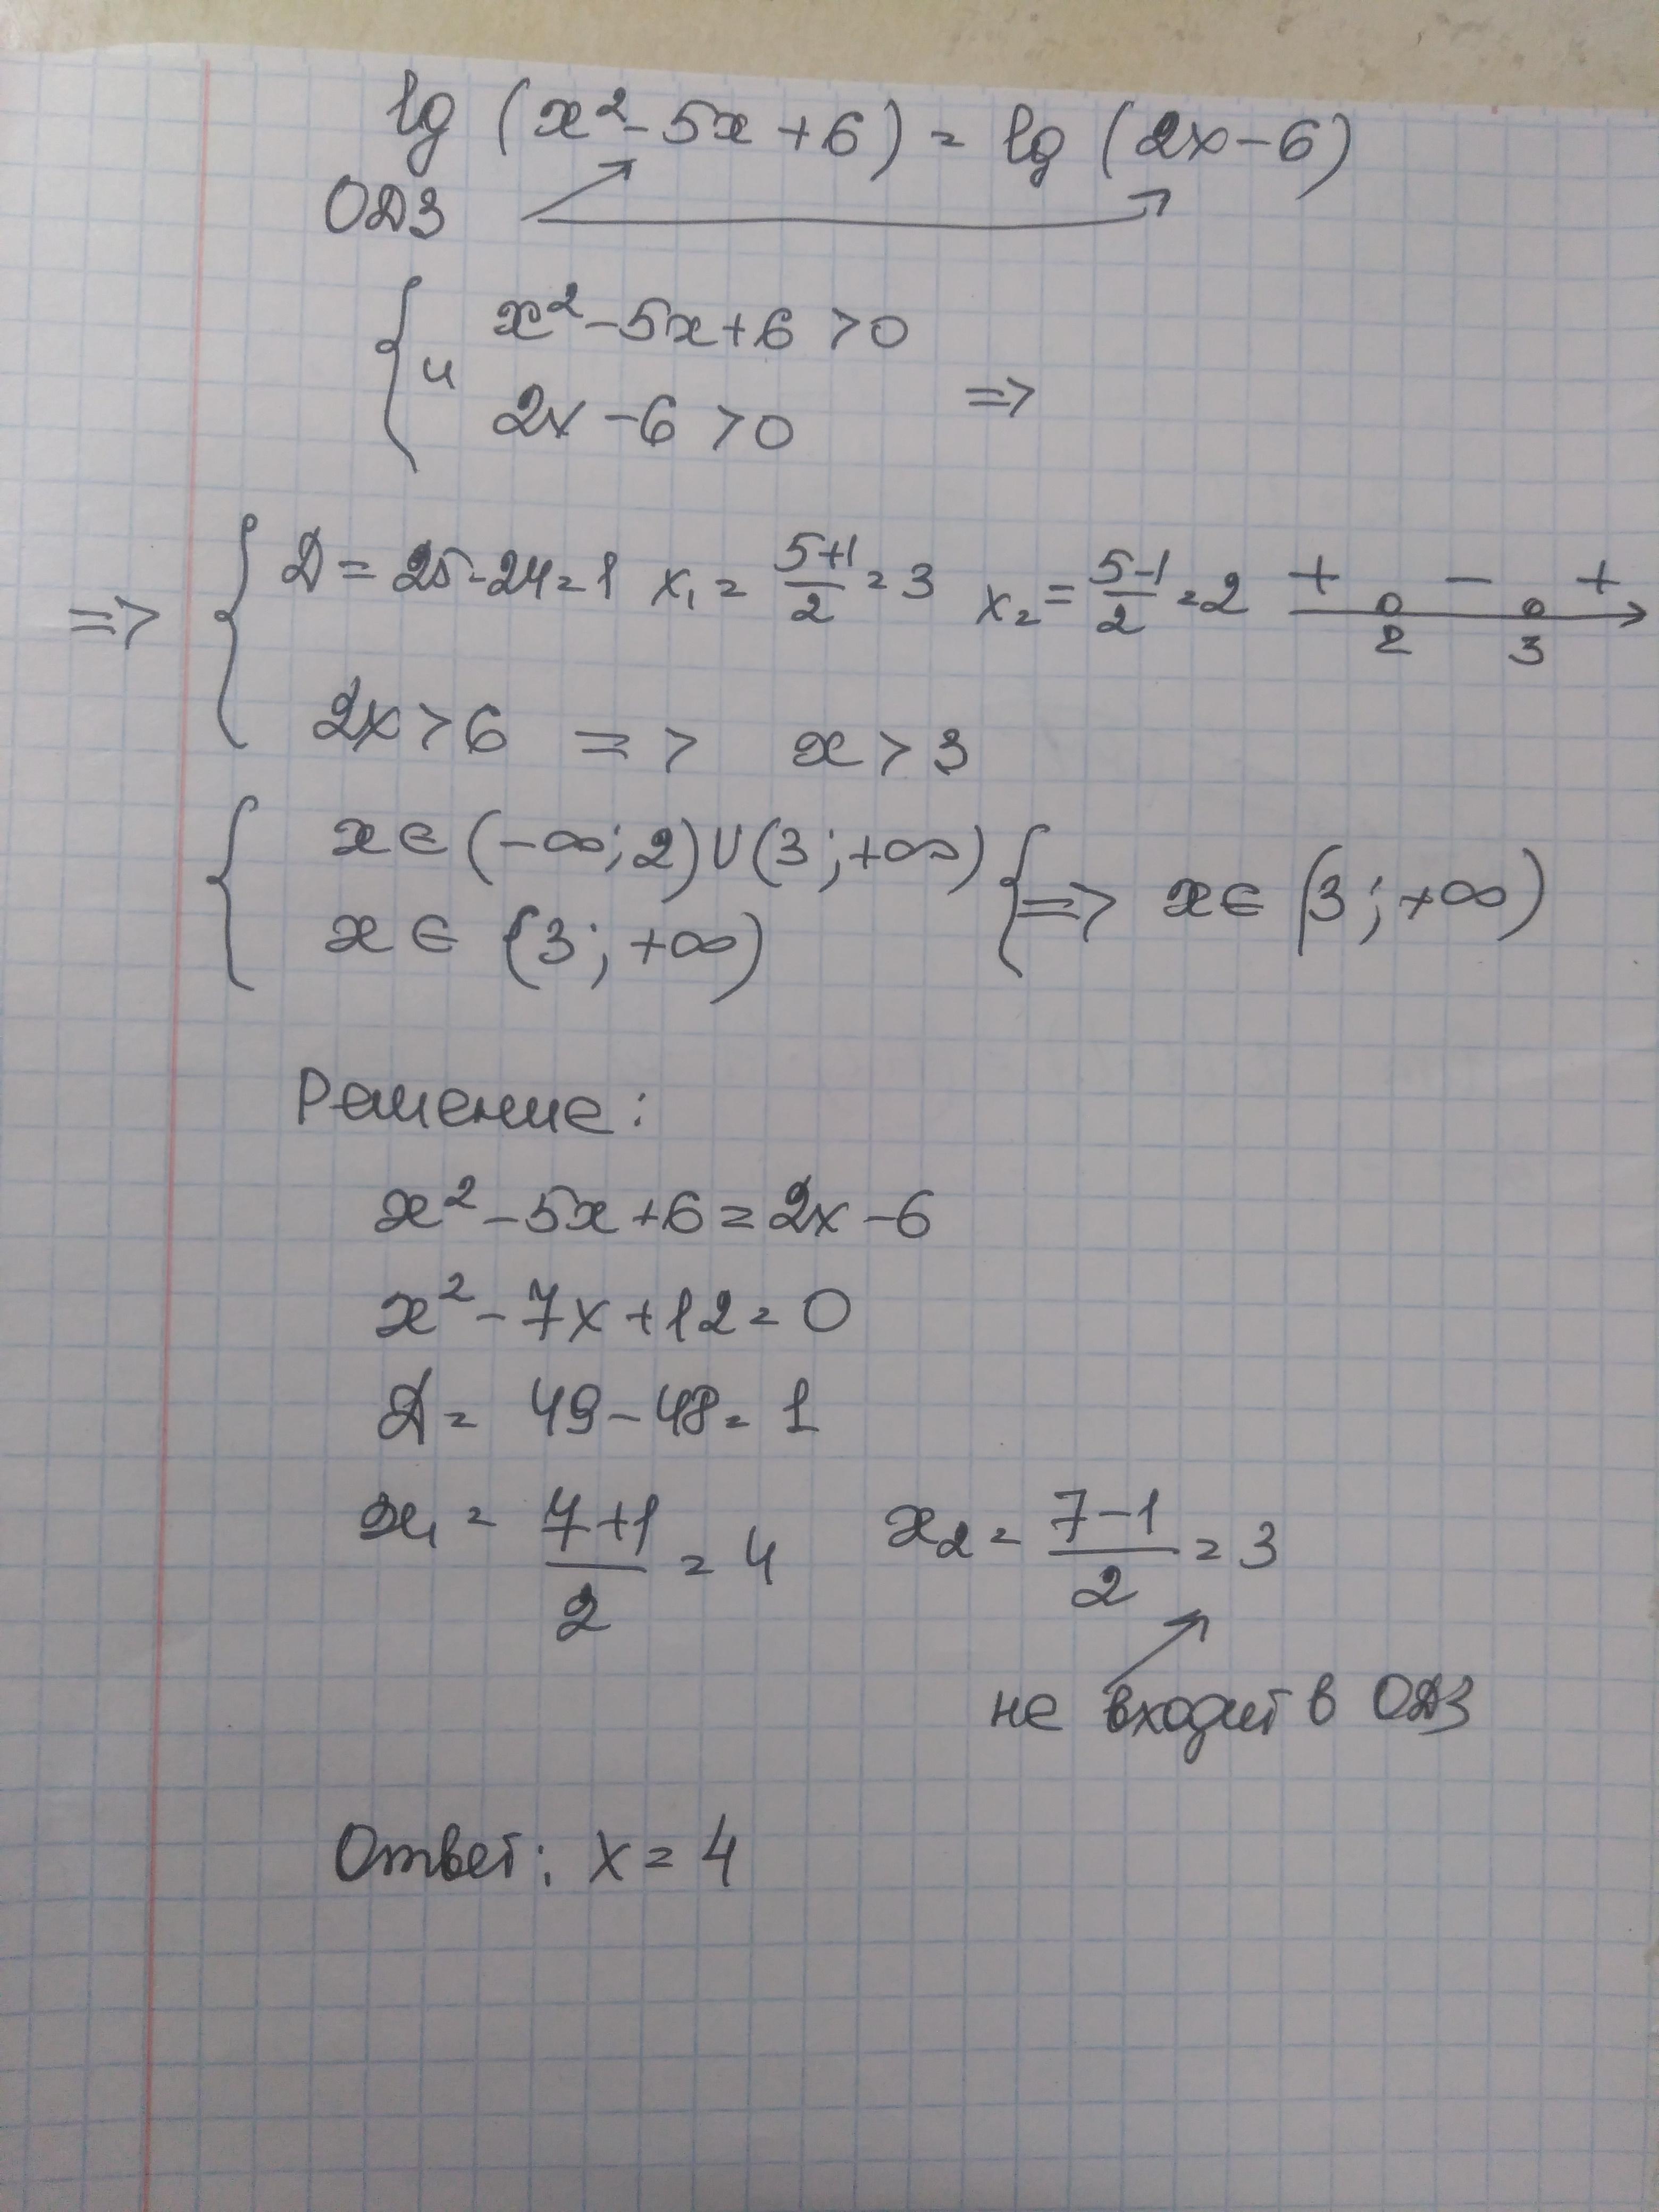 lg (x² - 5x + 6) = lg (2x - 6)
ОДЗ
{ x² - 5x + 6 > 0
и
2x - 6 > 0 =>
=> { D = 25 - 24 = 1 x₁ = (5+1)/2 = 3 x₂ = (5-1)/2 = 2 + - +
2 3
2x > 6 => x > 3
{ x ∈ (-∞; 2) ∪ (3; +∞)
x ∈ (3; +∞) { => x ∈ (3; +∞)
Решение:
x² - 5x + 6 = 2x - 6
x² - 7x + 12 = 0
D = 49 - 48 = 1
x₁ = (7+1)/2 = 4 x₂ = (7-1)/2 = 3
не входит в ОДЗ
Ответ: x = 4